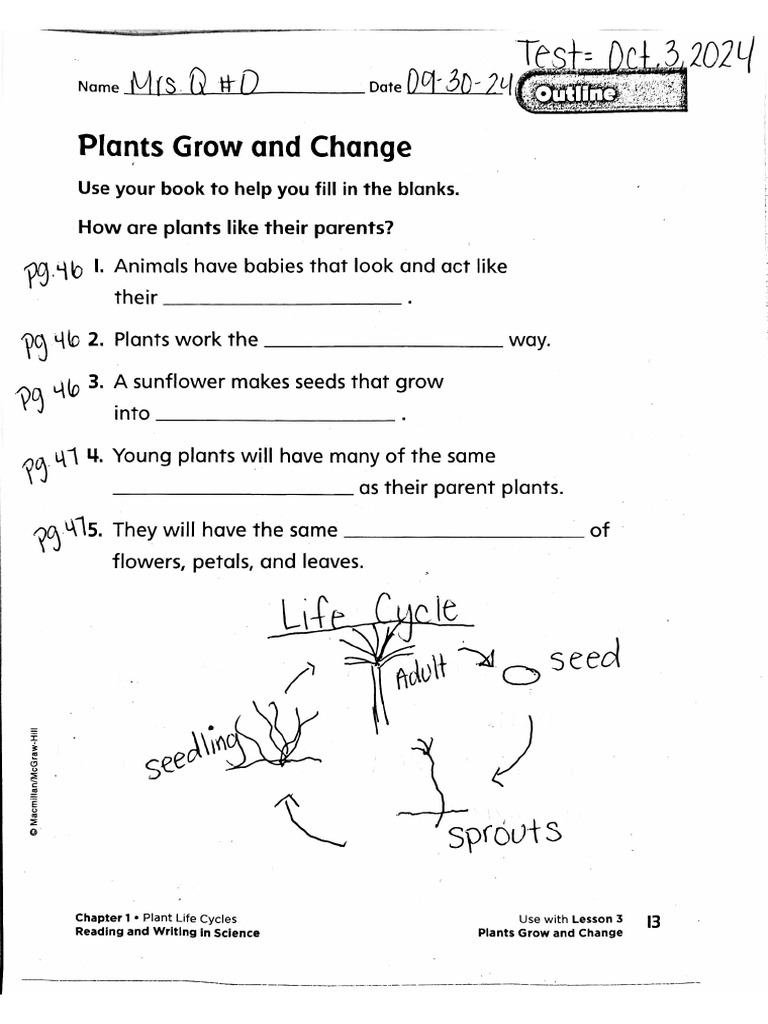 Test= Oct. 3, 2024
Name Mrs. Q #0 Date 09-30-24
Outline
Plants Grow and Change
Use your book to help you fill in the blanks.
How are plants like their parents?
pg. 46 1. Animals have babies that look and act like
their ____________ .
pg 46 2. Plants work the ____________ way.
pg 46 3. A sunflower makes seeds that grow
into ____________ .
pg. 47 4. Young plants will have many of the same
____________ as their parent plants.
pg. 47 5. They will have the same ____________ of
flowers, petals, and leaves.
Life Cycle
Adult
seed
seedling
sprouts
© Macmillan/McGraw-Hill
Chapter 1 • Plant Life Cycles
Reading and Writing in Science
Use with Lesson 3
Plants Grow and Change
13